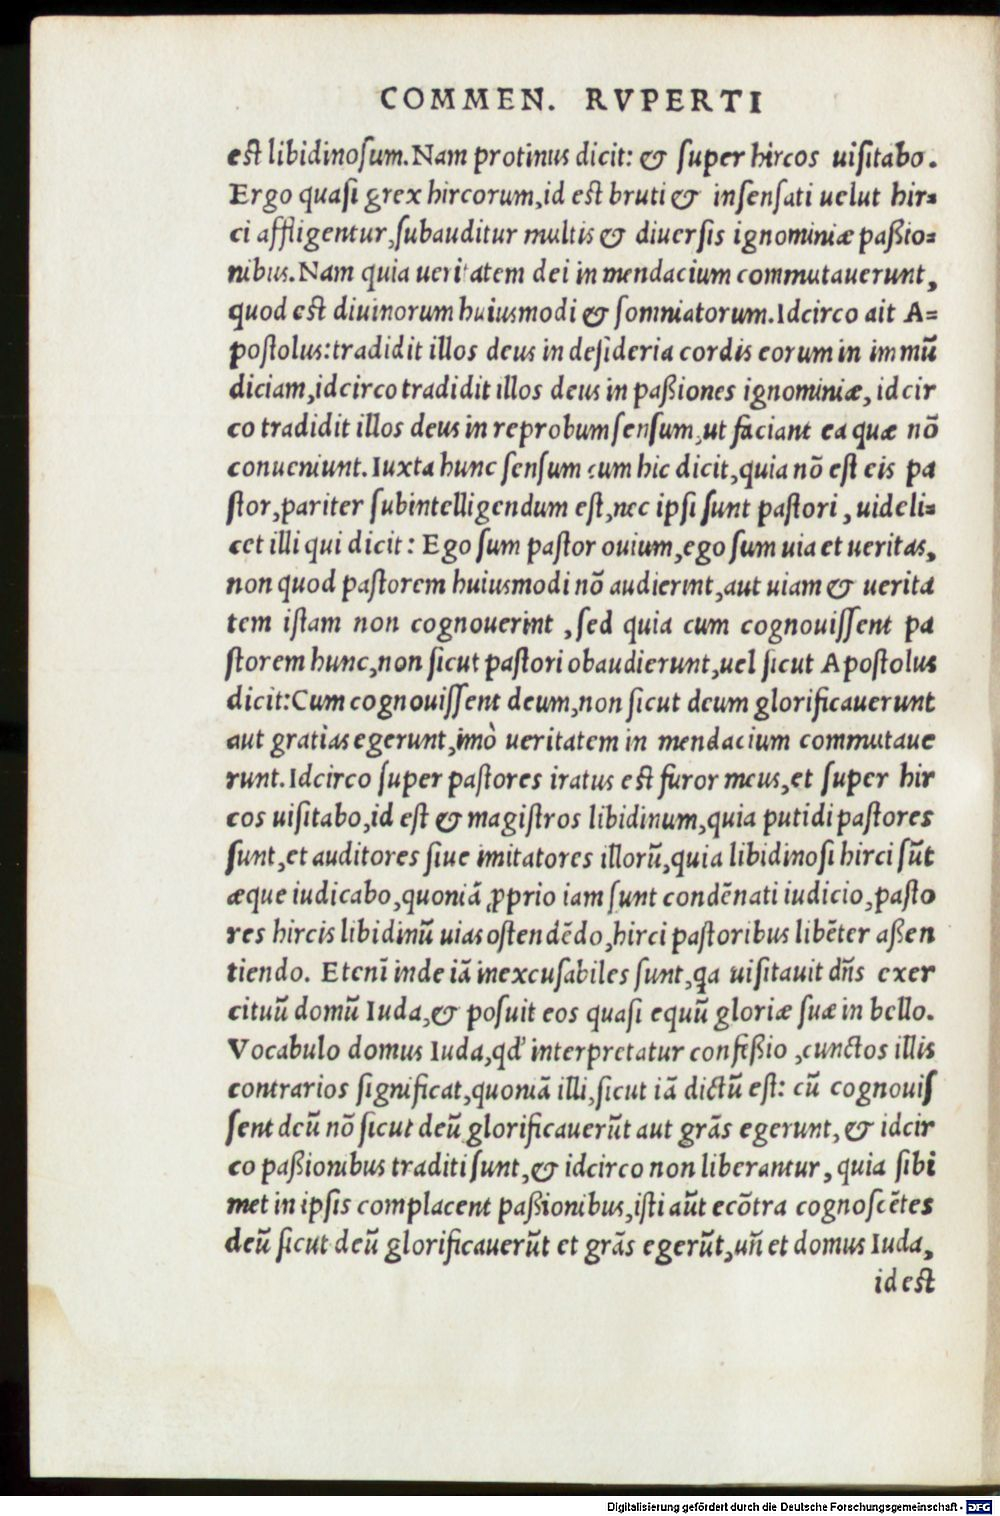 COMMEN. RVPERTI
est libidinosum. Nam protinus dicit: & super hircos uisitabo.
Ergo quasi grex hircorum, id est bruti & insensati uelut hir=
ci affligentur, subauditur multis & diuersis ignominiæ paßio=
nibus. Nam quia ueritatem dei in mendacium commutauerunt,
quod est diuinorum huiusmodi & somniatorum. Idcirco ait A=
postolus: tradidit illos deus in desideria cordis eorum in immū
diciam, idcirco tradidit illos deus in paßiones ignominiæ, idcir
co tradidit illos deus in reprobum sensum, ut faciant ea quæ nō
conueniunt. Iuxta hunc sensum cum hic dicit, quia nō est eis pa
stor, pariter subintelligendum est, nec ipsi sunt pastori, uideli=
cet illi qui dicit: Ego sum pastor ouium, ego sum uia et ueritas,
non quod pastorem huiusmodi nō audierint, aut uiam & uerita
tem istam non cognouerint, sed quia cum cognouissent pa
storem hunc, non sicut pastori obaudierunt, uel sicut Apostolus
dicit: Cum cognouissent deum, non sicut deum glorificauerunt
aut gratias egerunt, imò ueritatem in mendacium commutaue
runt. Idcirco super pastores iratus est furor meus, et super hir
cos uisitabo, id est & magistros libidinum, quia putidi pastores
sunt, et auditores siue imitatores illorū, quia libidinosi hirci sūt
æque iudicabo, quoniā ꝓprio iam sunt condēnati iudicio, pasto
res hircis libidinū uias ostendēdo, hirci pastoribus libēter aßen
tiendo. Etenī inde iā inexcusabiles sunt, qa uisitauit dn̄s exer
cituū domū Iuda, & posuit eos quasi equū gloriæ suæ in bello.
Vocabulo domus Iuda, qd' interpretatur confeßio, cunctos illis
contrarios significat, quoniā illi, sicut iā dictū est: cū cognouis
sent deū nō sicut deū glorificauerūt aut grās egerunt, & idcir
co paßionibus traditi sunt, & idcirco non liberantur, quia sibi
met in ipsis complacent paßionibus, isti aūt ecōtra cognoscētes
deū sicut deū glorificauerūt et grās egerūt, un̄ et domus Iuda,
id est
Digitalisierung gefördert durch die Deutsche Forschungsgemeinschaft - DFG